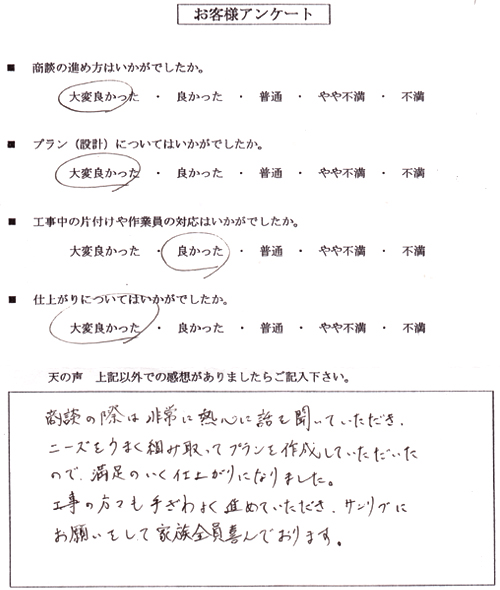 お客様アンケート
■ 商談の進め方はいかがでしたか。
大変良かった ・ 良かった ・ 普通 ・ やや不満 ・ 不満
■ プラン（設計）についてはいかがでしたか。
大変良かった ・ 良かった ・ 普通 ・ やや不満 ・ 不満
■ 工事中の片付けや作業員の対応はいかがでしたか。
大変良かった ・ 良かった ・ 普通 ・ やや不満 ・ 不満
■ 仕上がりについてはいかがでしたか。
大変良かった ・ 良かった ・ 普通 ・ やや不満 ・ 不満
天の声 上記以外での感想がありましたらご記入下さい。
商談の際は非常に熱心に話を聞いていただき、
ニーズをうまく組み取ってプランを作成していただいた
ので、満足のいく仕上がりになりました。
工事の方々も手ぎわよく進めていただき、サンリブに
お願いをして家族全員喜んでおります。